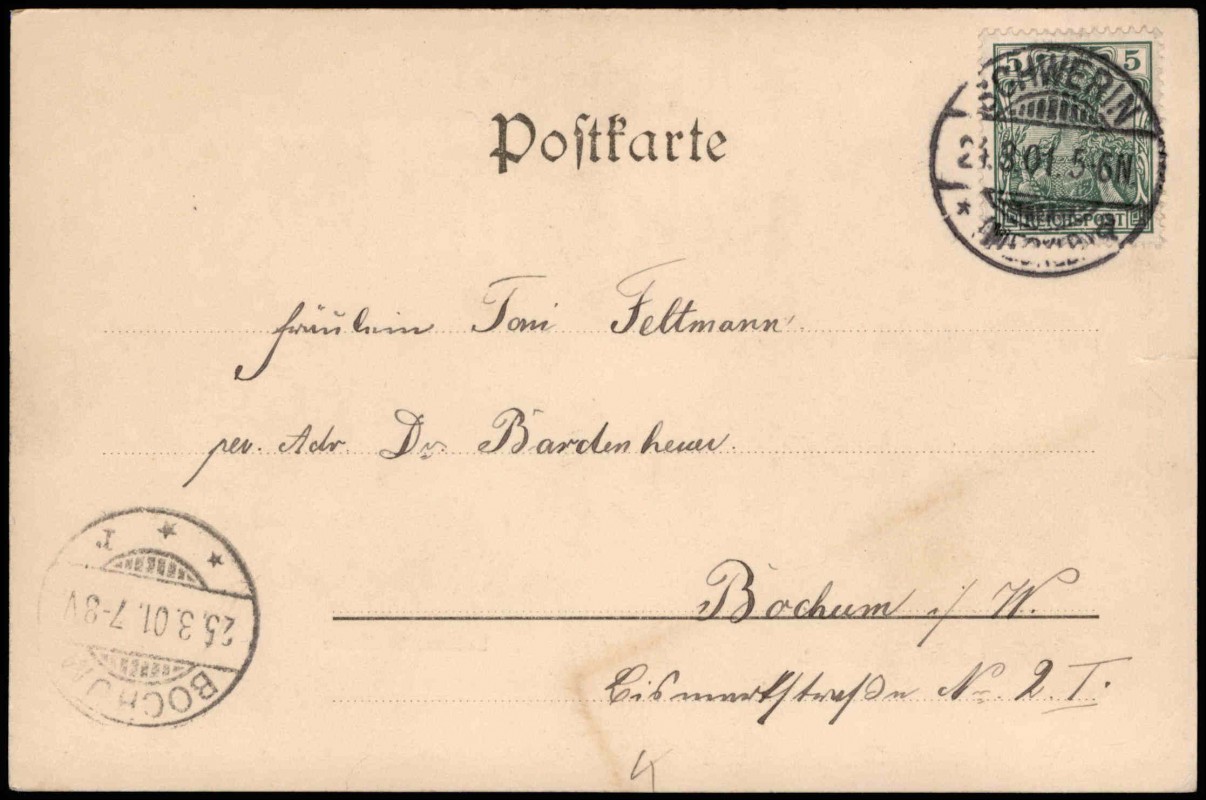 Postkarte
5 5
REICHSPOST
SCHWERIN
24.3.01. 5-6N.
* (MECKLBG)
Fräulein Toni Feltmann
per. Adr. Dr. Bardenheuer.
Bochum i/W.
Bismarkstraße No 2 I.
BOCHUM
25.3.01. 7-8V
* * r